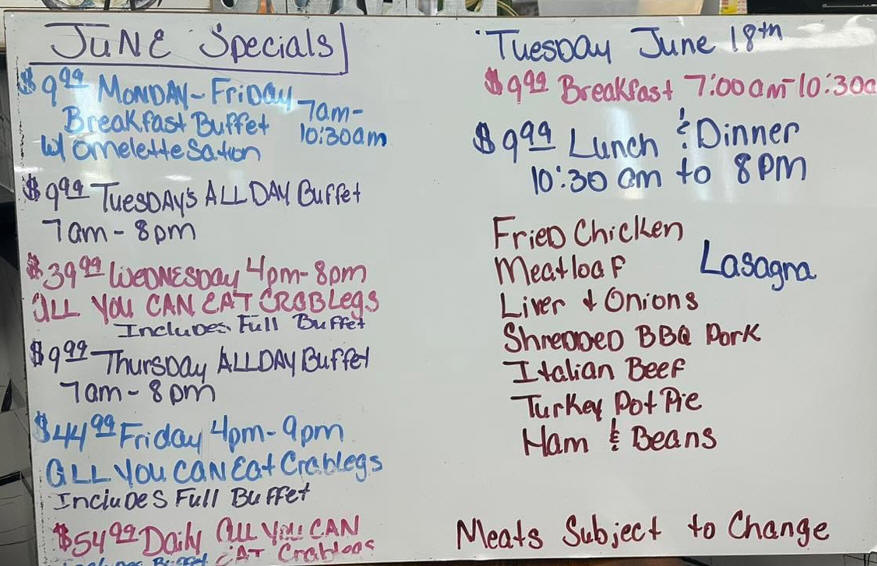 JUNE Specials
$9.99 MONDAY - FRIDAY
Breakfast Buffet 7am-
w/ Omelette Sation 10:30am
$9.99 Tuesday's ALL DAY Buffet
7am - 8pm
$39.99 WEDNESDAY 4pm-8pm
ALL YOU CAN EAT CRABLEgS
Includes Full Buffet
$9.99 Thursday ALLDAY Buffet
7am - 8pm
$44.99 Friday 4pm-9pm
ALL YOU CAN Eat Crablegs
Includes Full Buffet
$54.99 Daily ALL YOU CAN
EAT Crablegs
Tuesday June 18th
$9.99 Breakfast 7:00am-10:30a
$9.99 Lunch & Dinner
10:30 am to 8PM
Fried Chicken
Meatloaf Lasagna
Liver & Onions
Shredded BBQ Pork
Italian Beef
Turkey Pot Pie
Ham & Beans
Meats Subject to Change